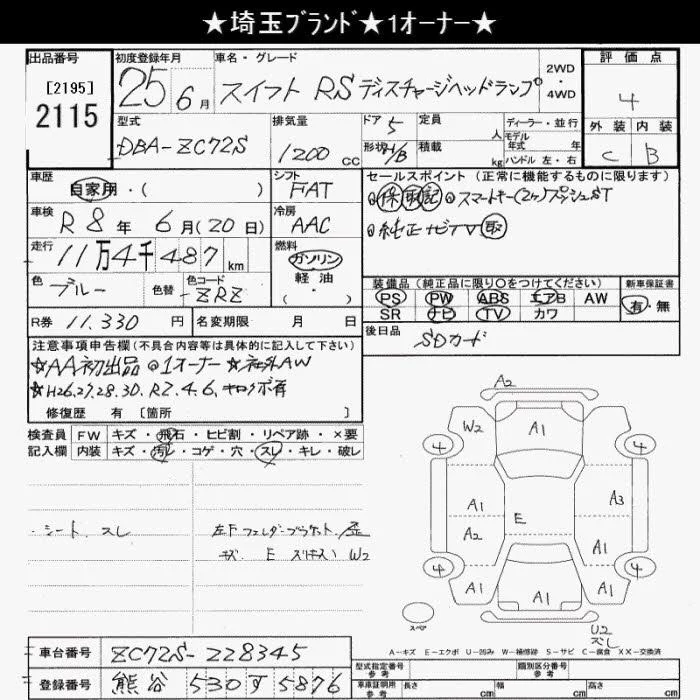 ★埼玉ブランド★1オーナー★
出品番号 初度登録年月 車名・グレード 評価点
[2195] 2115
25 6月 スイフト RS ディスチャージヘッドランプ 2WD・4WD
4
型式 排気量 ドア 5 定員 人 ディーラー・並行 外装 内装
DBA-ZC72S 1200cc 形状 H/B 積載 kg モデル年式 年式 ハンドル 左・右 C B
車歴 シフト セールスポイント (正常に機能するものに限ります)
自家用・( ) FAT ◎保 取 記 ◎スマートキー(2ヶ)プッシュST
車検 冷房 ◎純正ナビTV 取
R8年 6月(20日) AAC
走行 燃料
11万4千487km ガソリン 軽油・( )
色 色替 色コード 装備品 (純正品に限り○をつけてください) 新車保証書
ブルー ZRZ PS PW ABS エアB AW 有・無
SR ナビ TV カワ
R券 11,330円 名変期限 月 日 後日品 SDカード
注意事項申告欄(不具合内容等は具体的に記入して下さい)
☆AA初出品 ◎1オーナー ☆社外AW
☆H26.27.28.30.R2.4.6.キロクボ有
修復歴 有 [箇所 ]
検査員 FW キズ・飛石・ヒビ割・リペア跡・×要
記入欄 内装 キズ・汚レ・コゲ・穴・スレ・キレ・破レ
・シート スレ 左Fフェンダーブラケット歪
キズ E スリキズ W2
A2
W2 A1
4 4
A1 A3
A2 E
4 4
A1 A1 A1
スペア U2 ズレ
A-キズ E-エクボ U-凹み W-補修跡 S-サビ C-腐食 XX-交換済
車台番号 ZC72S-228345
登録番号 熊谷 530 す 5876
型式指定番号 参考 類別区分番号 参考
車庫証明用 参考 長さ cm 幅 cm 高さ cm